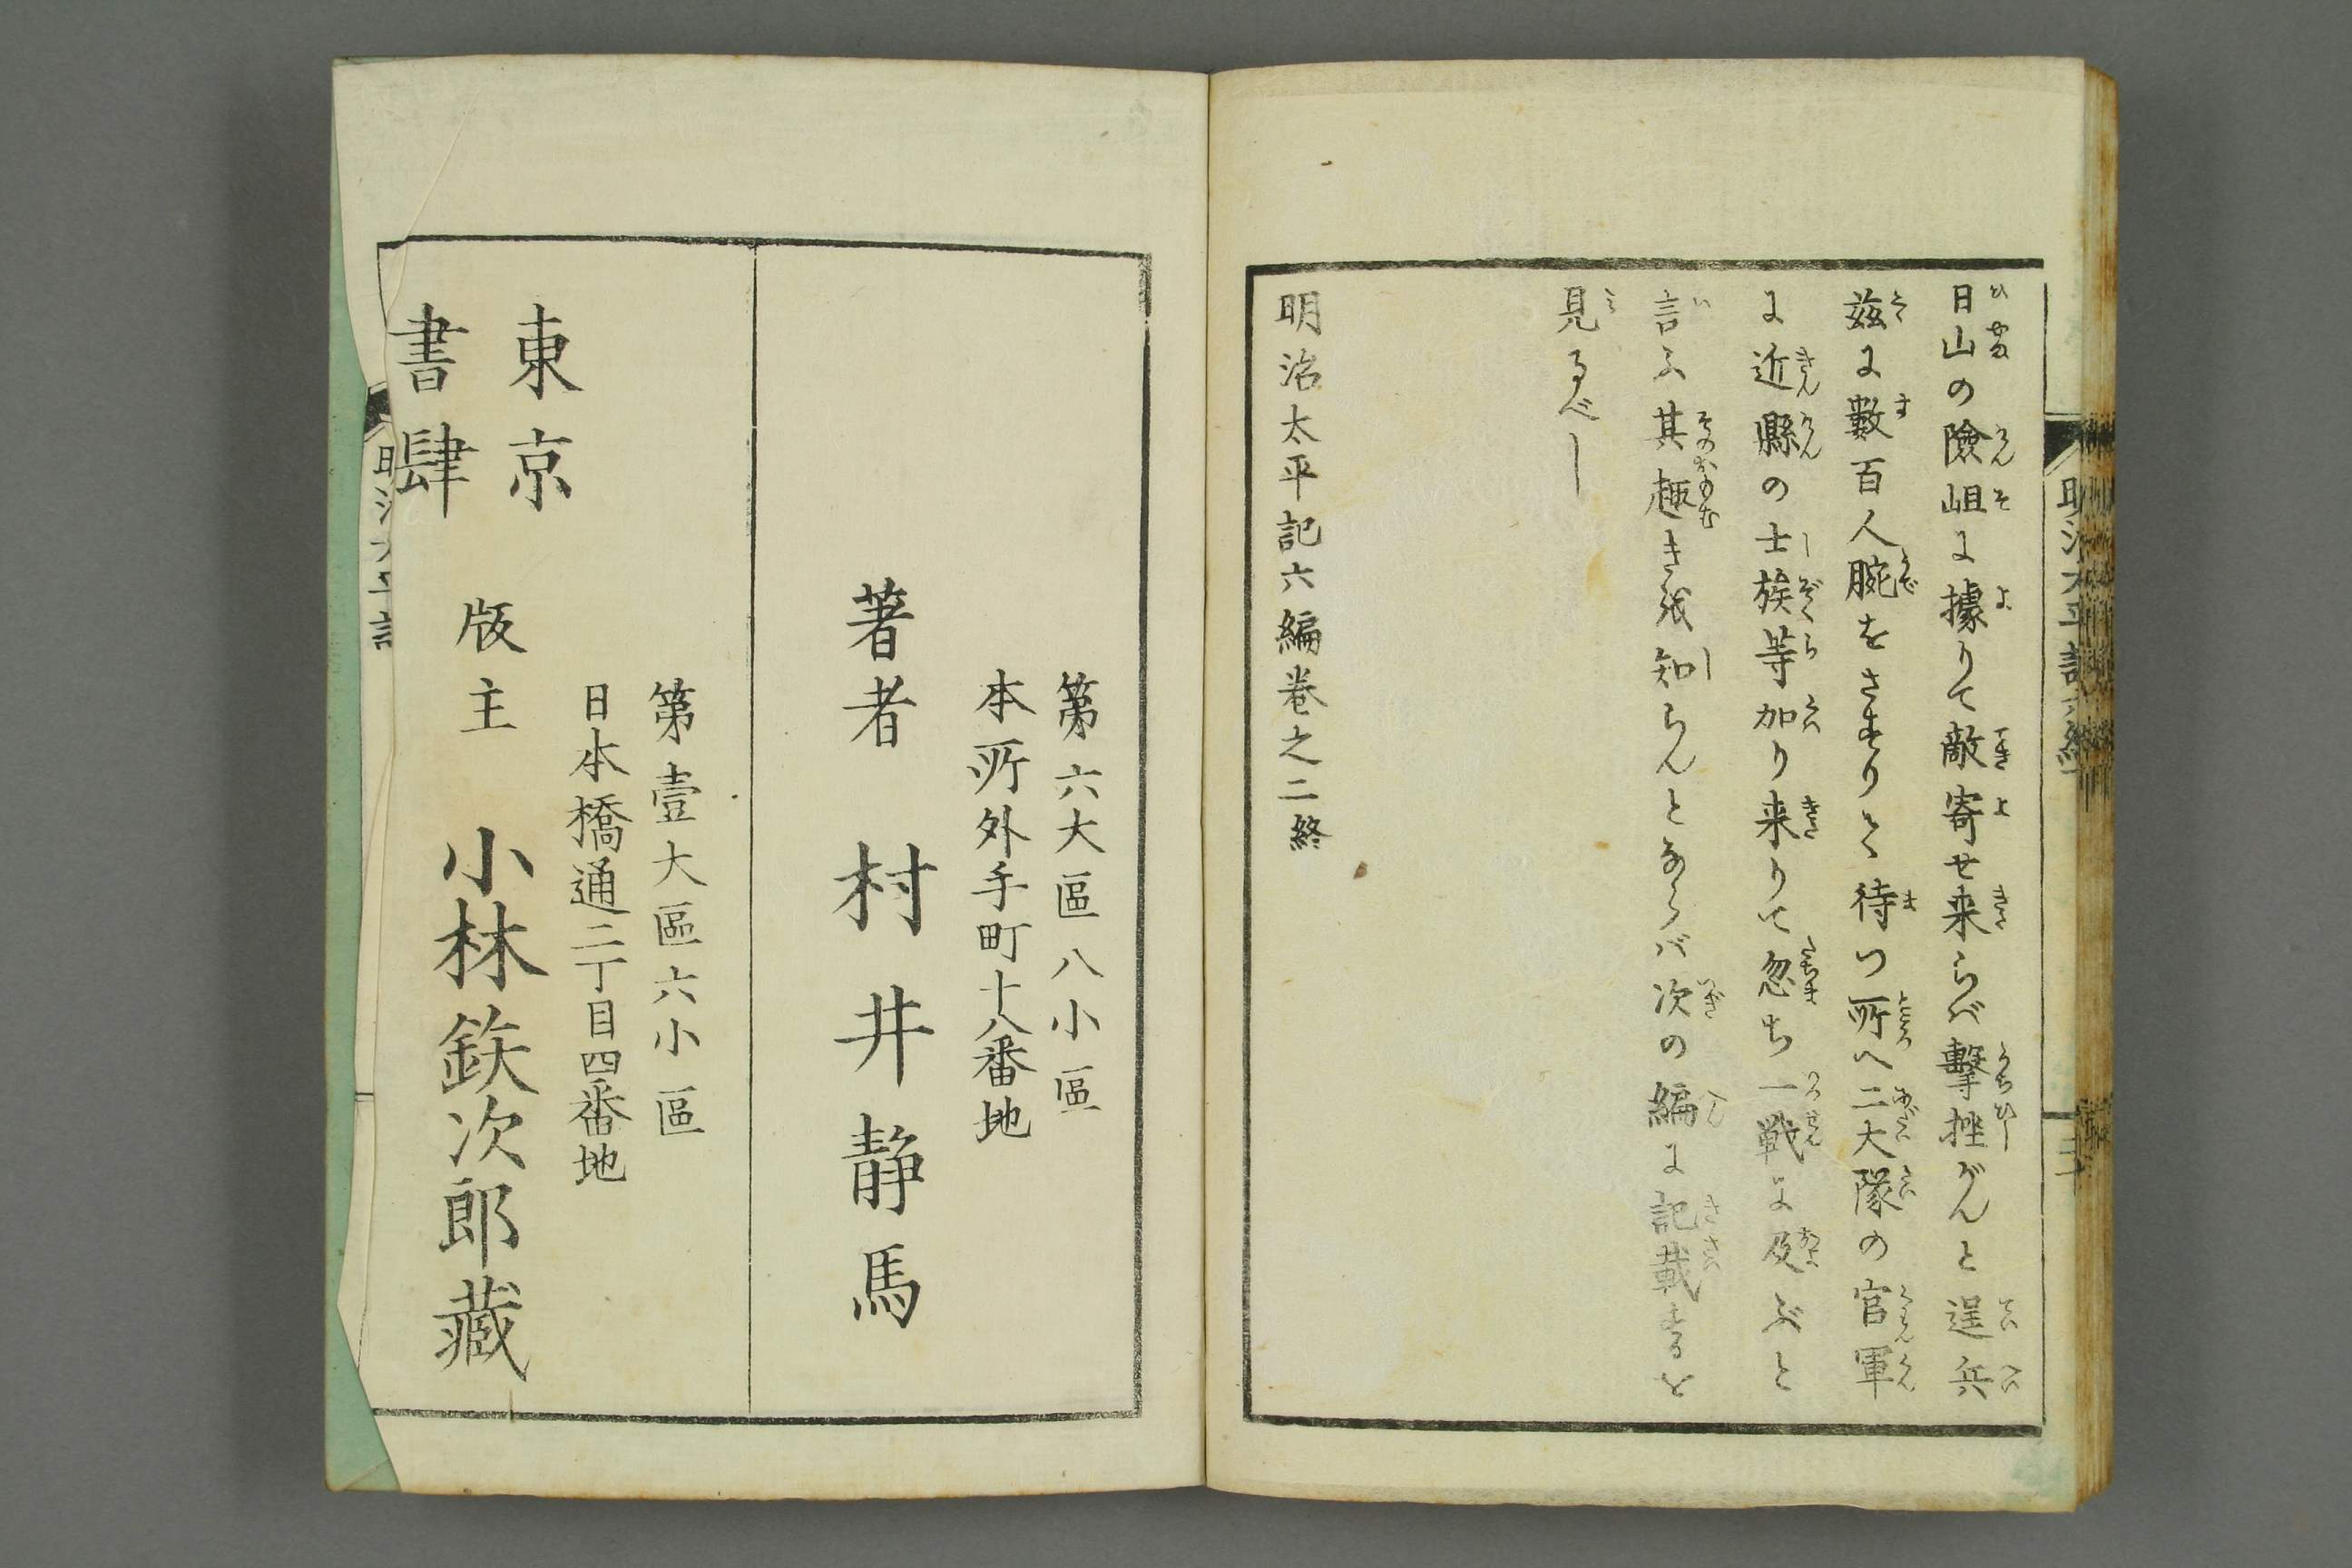 日山の険岨に據りて敵寄せ来らば撃挫がんと逞兵
茲に數百人腕をさすりて待つ所へ二大隊の官軍
に近縣の士族等加り来りて忽ち一戦に及ぶと
言ふ其趣きを知らんとならバ次の編に記載するを
見るべし
明治太平記六編巻之二終
第六大區八小區
本所外手町十八番地
著者 村井静馬
第壹大區六小區
日本橋通二丁目四番地
東京
書肆
版主 小林鉄次郎藏